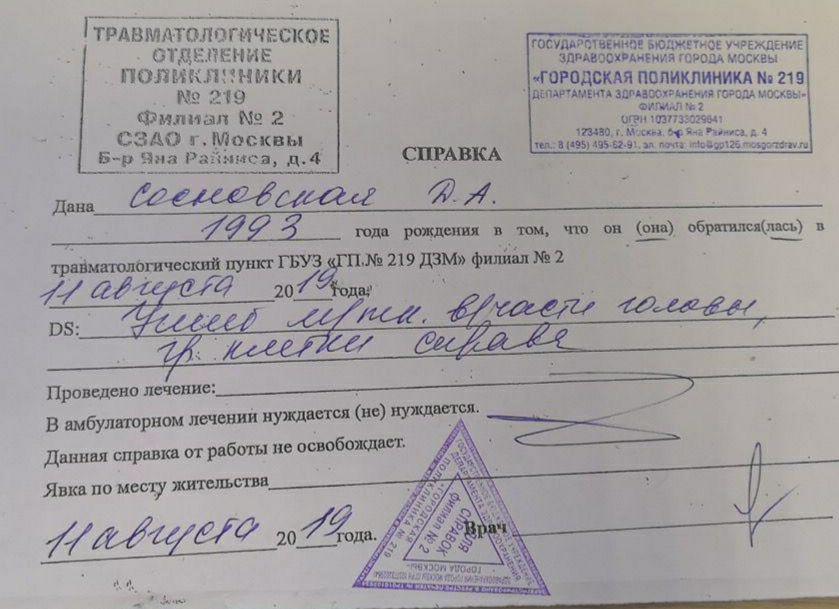 ТРАВМАТОЛОГИЧЕСКОЕ
ОТДЕЛЕНИЕ
ПОЛИКЛИНИКИ
№ 219
Филиал № 2
СЗАО г. Москвы
Б-р Яна Райниса, д. 4
ГОСУДАРСТВЕННОЕ БЮДЖЕТНОЕ УЧРЕЖДЕНИЕ
ЗДРАВООХРАНЕНИЯ ГОРОДА МОСКВЫ
«ГОРОДСКАЯ ПОЛИКЛИНИКА № 219
ДЕПАРТАМЕНТА ЗДРАВООХРАНЕНИЯ ГОРОДА МОСКВЫ»
ФИЛИАЛ № 2
ОГРН 1037733029641
123480, г. Москва, б-р Яна Райниса, д. 4
тел.: 8 (495) 495-62-91, эл. почта: info@gp126.mosgorzdrav.ru
СПРАВКА
Дана Сосновская Д.А.
1993 года рождения в том, что он (она) обратился(лась) в
травматологический пункт ГБУЗ «ГП.№ 219 ДЗМ» филиал № 2
11 августа 2019 года,
DS: Ушиб м/тк. в/части головы,
гр. клетки справа
Проведено лечение:
В амбулаторном лечении нуждается (не) нуждается.
Данная справка от работы не освобождает.
Явка по месту жительства
11 августа 2019 года. Врач
ДЛЯ
СПРАВОК
Филиал № 2